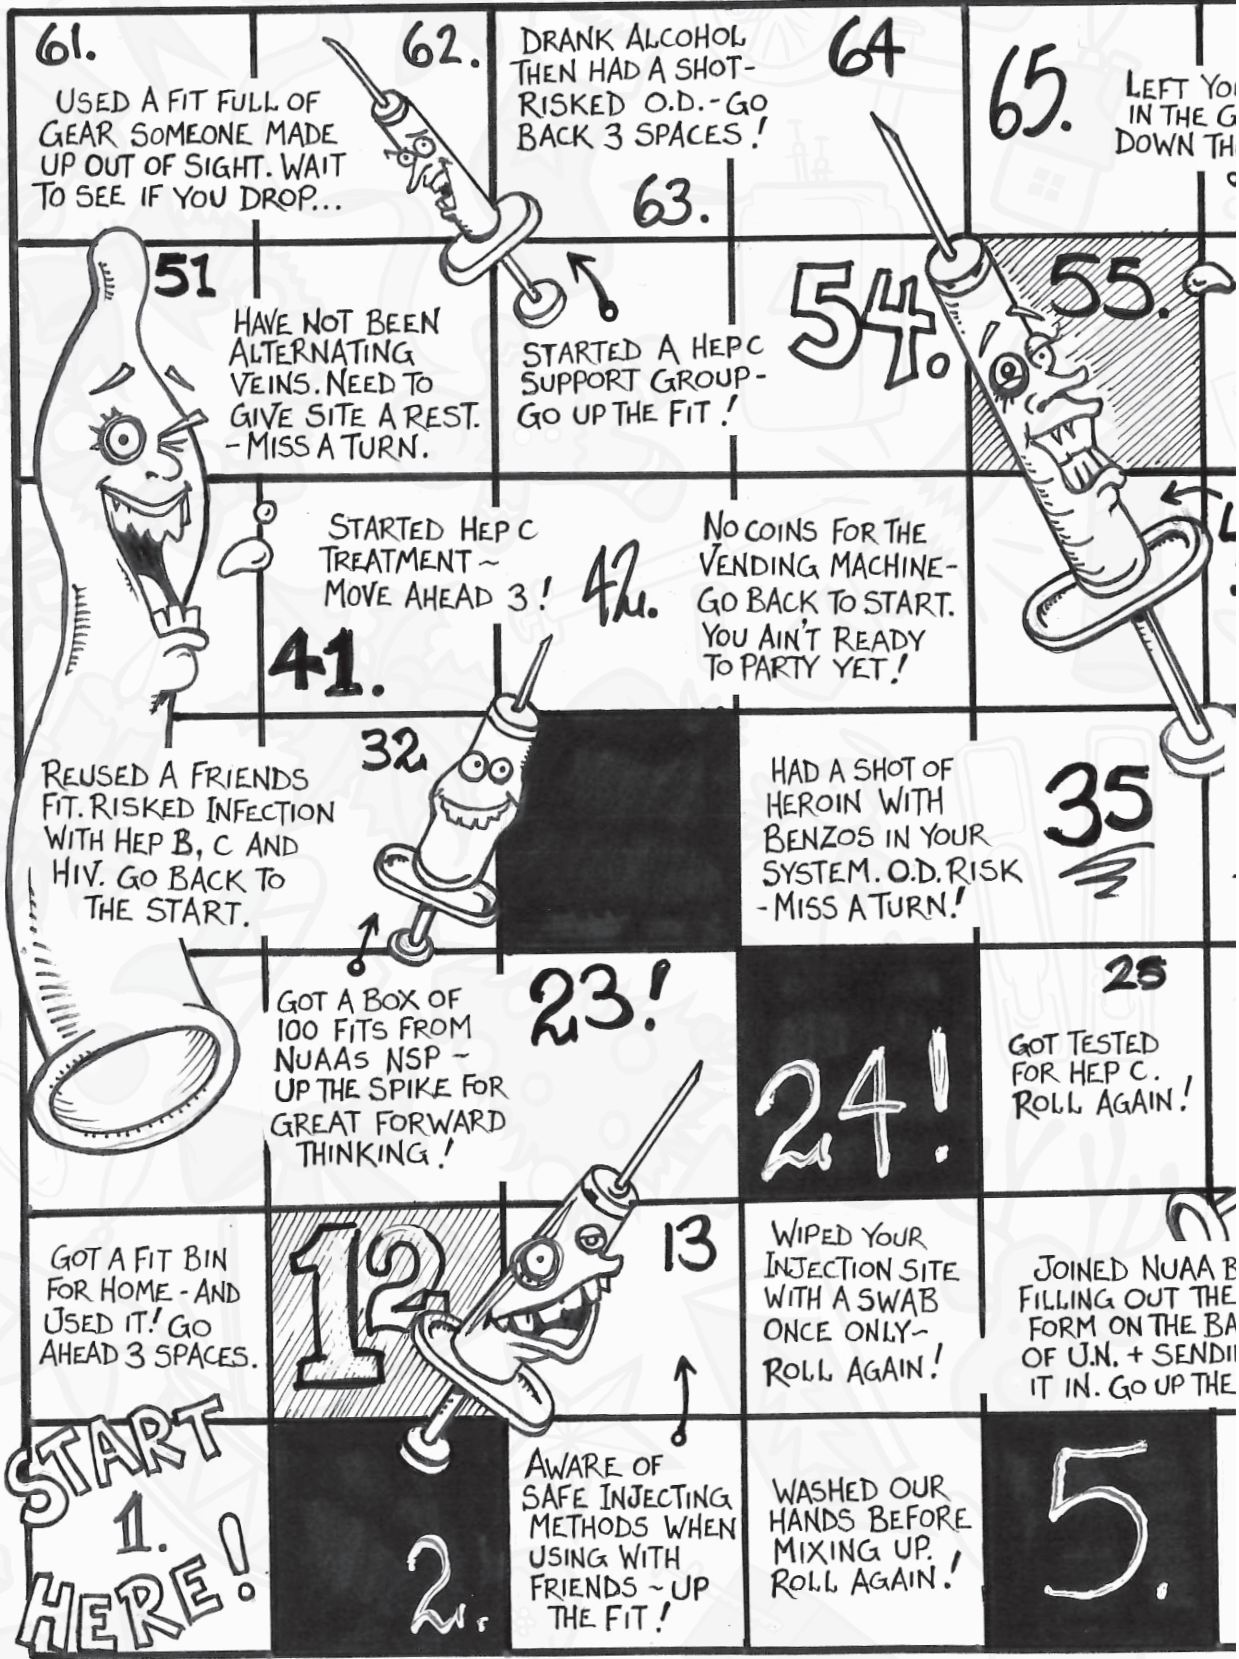 61.
USED A FIT FULL OF
GEAR SOMEONE MADE
UP OUT OF SIGHT. WAIT
TO SEE IF YOU DROP...
62.
DRANK ALCOHOL
THEN HAD A SHOT-
RISKED O.D.-GO
BACK 3 SPACES!
63.
64
65.
LEFT
IN THE
DOWN
51
HAVE NOT BEEN
ALTERNATING
VEINS. NEED TO
GIVE SITE A REST.
-MISS A TURN.
STARTED A HEP C
SUPPORT GROUP-
GO UP THE FIT!
54.
55.
STARTED HEP C
TREATMENT ~
MOVE AHEAD 3!
41.
42.
NO COINS FOR THE
VENDING MACHINE-
GO BACK TO START.
YOU AIN'T READY
TO PARTY YET!
REUSED A FRIENDS
FIT. RISKED INFECTION
WITH HEP B, C AND
HIV. GO BACK TO
THE START.
32
HAD A SHOT OF
HEROIN WITH
BENZOS IN YOUR
SYSTEM. O.D. RISK
-MISS A TURN!
35
GOT A BOX OF
100 FITS FROM
NUAAS NSP ~
UP THE SPIKE FOR
GREAT FORWARD
THINKING!
23!
24!
25
GOT TESTED
FOR HEP C.
ROLL AGAIN!
GOT A FIT BIN
FOR HOME - AND
USED IT! GO
AHEAD 3 SPACES.
12
13
WIPED YOUR
INJECTION SITE
WITH A SWAB
ONCE ONLY~
ROLL AGAIN!
JOINED NUAA B
FILLING OUT THE
FORM ON THE BA
OF U.N. + SENDI
IT IN. GO UP THE
START
1.
HERE!
2.
AWARE OF
SAFE INJECTING
METHODS WHEN
USING WITH
FRIENDS ~ UP
THE FIT!
WASHED OUR
HANDS BEFORE
MIXING UP.
ROLL AGAIN!
5.